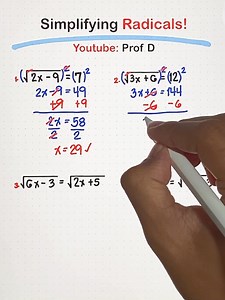 Simplifying Radicals!
Youtube: Prof D
1. (√2x - 9)² = (7)²
2x - 9 = 49
+9 +9
2x = 58
2 2
x = 29 ✓
2. (√3x + 6)² = (12)²
3x + 6 = 144
-6 -6
3. √6x - 3 = √2x + 5